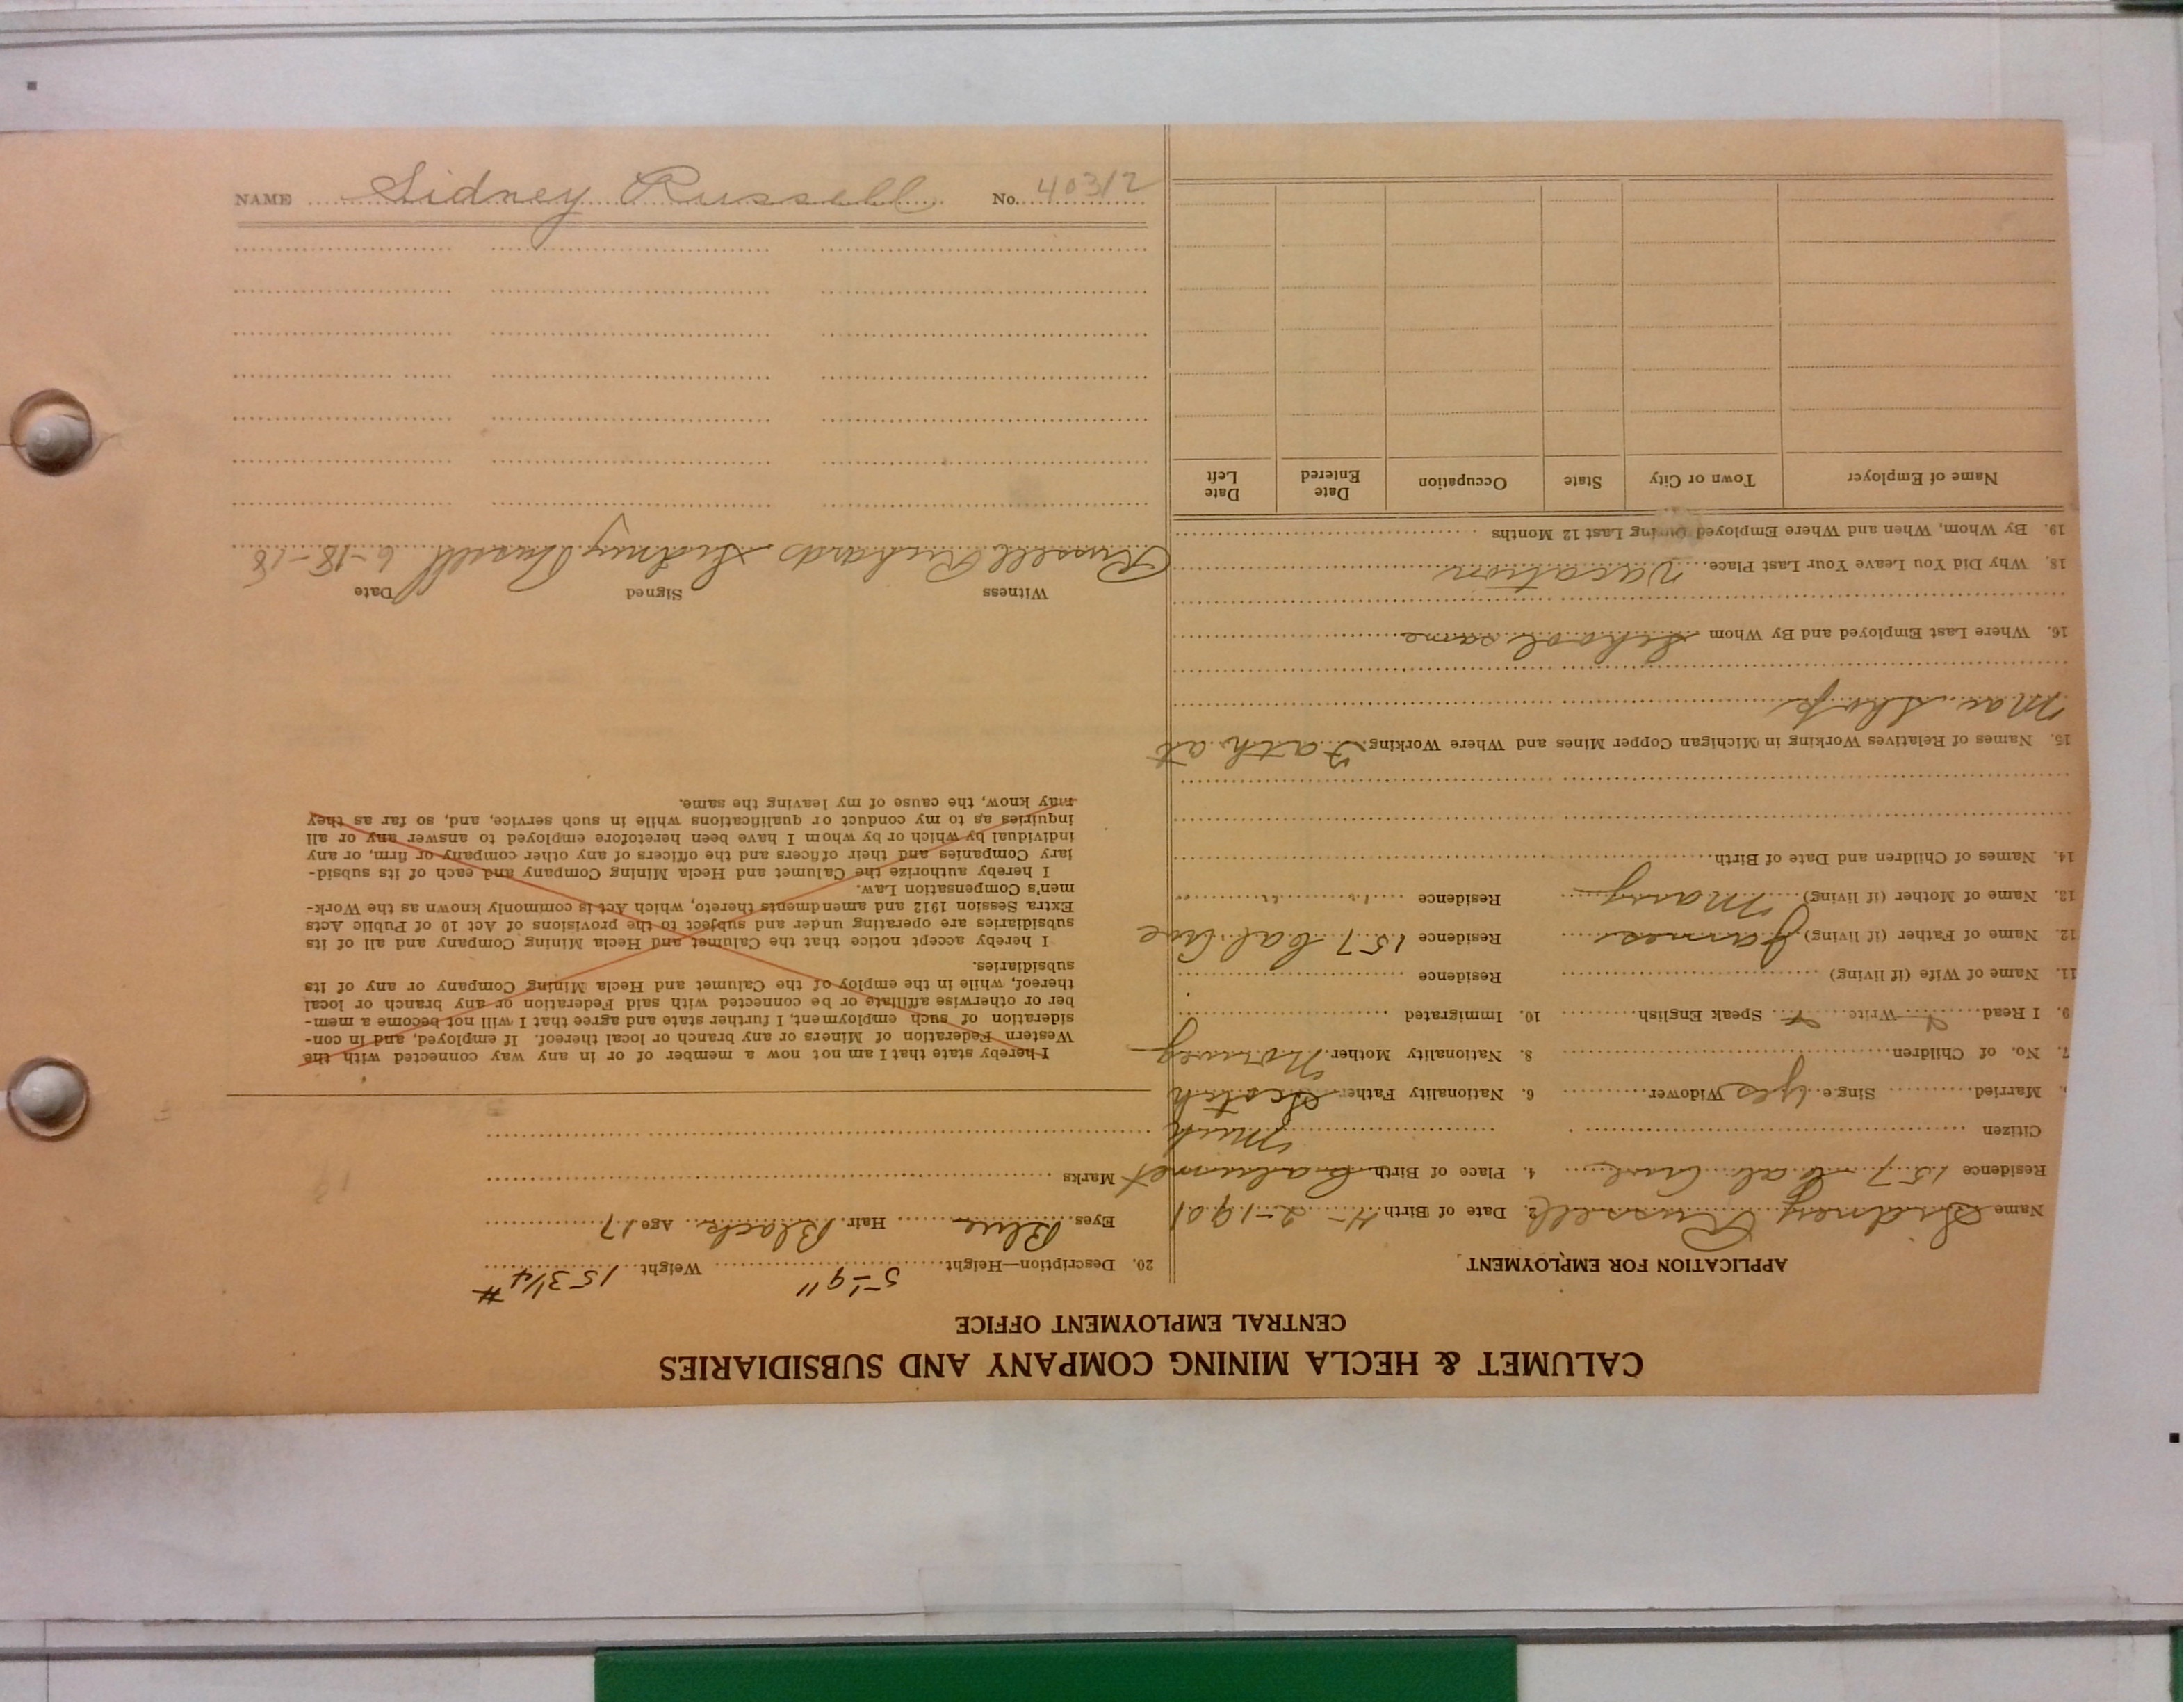 CALUMET & HECLA MINING COMPANY AND SUBSIDIARIES
CENTRAL EMPLOYMENT OFFICE
APPLICATION FOR EMPLOYMENT
Name Sidney Russell 2. Date of Birth 4-2-1901
Residence 157 Cal Ave 4. Place of Birth Calumet
Citizen Mich
Married Sing e yes Widower 6. Nationality Father Scotch
7. No. of Children 8. Nationality Mother Norweg
9. I Read Write Speak English 10. Immigrated
11. Name of Wife (if living) Residence
12. Name of Father (if living) James Residence 157 Cal Ave
13. Name of Mother (if living) Mary Residence " "
14. Names of Children and Date of Birth
15. Names of Relatives Working in Michigan Copper Mines and Where Working Fath at
Mac Shop
16. Where Last Employed and By Whom School same
18. Why Did You Leave Your Last Place Vacation
19. By Whom, When and Where Employed During Last 12 Months
Name of Employer Town or City State Occupation Date Entered Date Left
20. Description—Height 5'-9" Weight 153 1/4 #
Eyes Blue Hair Black Age 17
Marks
I hereby state that I am not now a member of or in any way connected with the
Western Federation of Miners or any branch or local thereof. If employed, and in con-
sideration of such employment, I further state and agree that I will not become a mem-
ber or otherwise affiliate or be connected with said Federation or any branch or local
thereof, while in the employ of the Calumet and Hecla Mining Company or any of its
subsidiaries.
I hereby accept notice that the Calumet and Hecla Mining Company and all of its
subsidiaries are operating under and subject to the provisions of Act 10 of Public Acts
Extra Session 1912 and amendments thereto, which Act is commonly known as the Work-
men's Compensation Law.
I hereby authorize the Calumet and Hecla Mining Company and each of its subsid-
iary Companies and their officers and the officers of any other company or firm, or any
individual by which or by whom I have been heretofore employed to answer any or all
inquiries as to my conduct or qualifications while in such service, and, so far as they
may know, the cause of my leaving the same.
Witness Signed Date
Russell Richards Sidney Russell 6-18-18
NAME Sidney Russell No. 40312